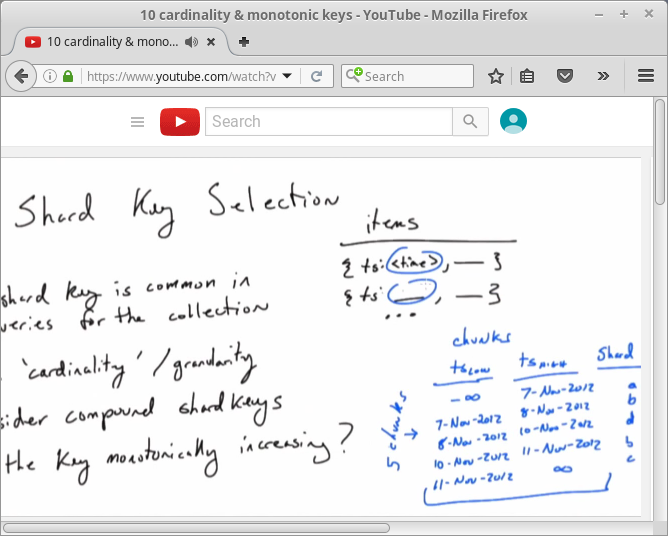 10 cardinality & monotonic keys - YouTube - Mozilla Firefox
10 cardinality & mono...
https://www.youtube.com/watch?v
Search
Search
Shard Key Selection
items
{ ts: <time>, — }
{ ts: __, — }
...
shard key is common in
ueries for the collection
'cardinality' / granularity
sider compound shard keys
the key monotonically increasing?
chunks
ts LOW ts HIGH Shard
-∞ 7-Nov-2012 a
7-Nov-2012 8-Nov-2012 b
8-Nov-2012 10-Nov-2012 d
10-Nov-2012 11-Nov-2012 b
11-Nov-2012 ∞ c
5 chunks →